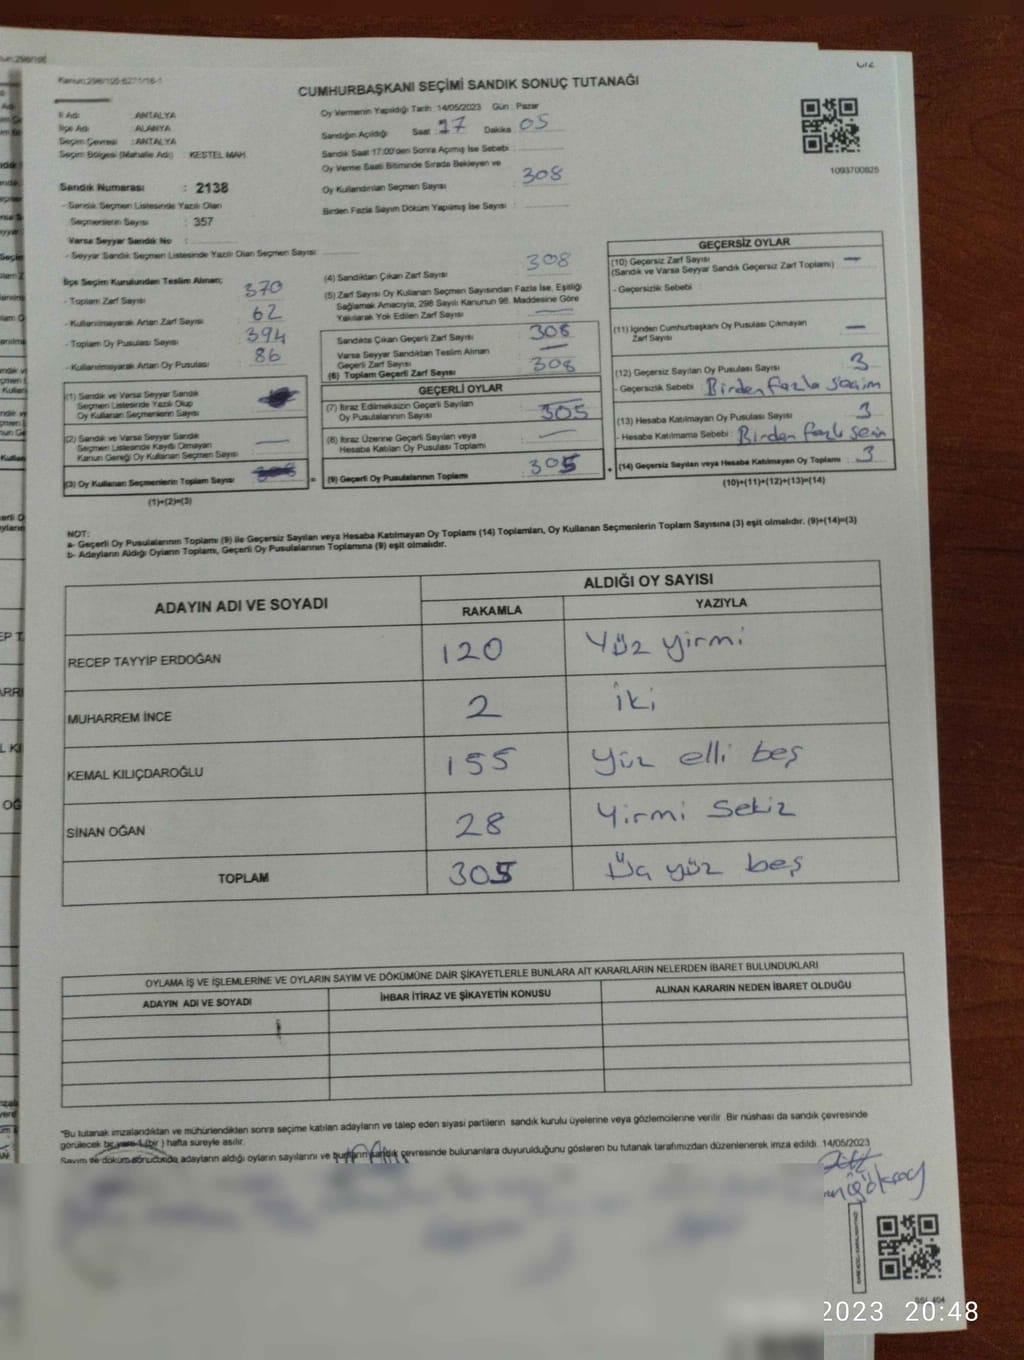 Kanun:298/105-6271/16-1
CUMHURBAŞKANI SEÇİMİ SANDIK SONUÇ TUTANAĞI
İl Adı : ANTALYA
İlçe Adı : ALANYA
Seçim Çevresi : ANTALYA
Seçim Bölgesi (Mahalle Adı) : KESTEL MAH.
Sandık Numarası : 2138
- Sandık Seçmen Listesinde Yazılı Olan
Seçmenlerin Sayısı : 357
Varsa Seyyar Sandık No :
- Seyyar Sandık Seçmen Listesinde Yazılı Olan Seçmen Sayısı :
Oy Vermenin Yapıldığı Tarih : 14/05/2023 Gün : Pazar
Sandığın Açıldığı Saat : 17 Dakika : 05
Sandık Saat 17:00'den Sonra Açılmış İse Sebebi :
Oy Verme Saati Bitiminde Sırada Bekleyen ve
Oy Kullandırılan Seçmen Sayısı : 308
Birden Fazla Sayım Döküm Yapılmış İse Sayısı :
1093700825
İlçe Seçim Kurulundan Teslim Alınan;
- Toplam Zarf Sayısı : 370
- Kullanılmayarak Artan Zarf Sayısı : 62
- Toplam Oy Pusulası Sayısı : 394
- Kullanılmayarak Artan Oy Pusulası : 86
(1) Sandık ve Varsa Seyyar Sandık
Seçmen Listesinde Yazılı Olup
Oy Kullanan Seçmenlerin Sayısı :
(2) Sandık ve Varsa Seyyar Sandık
Seçmen Listesinde Kayıtlı Olmayan
Kanun Gereği Oy Kullanan Seçmen Sayısı : —
(3) Oy Kullanan Seçmenlerin Toplam Sayısı : 308
(1)+(2)=(3)
(4) Sandıktan Çıkan Zarf Sayısı : 308
(5) Zarf Sayısı Oy Kullanan Seçmen Sayısından Fazla İse, Eşitliği
Sağlamak Amacıyla, 298 Sayılı Kanunun 98. Maddesine Göre
Yakılarak Yok Edilen Zarf Sayısı : —
Sandıkta Çıkan Geçerli Zarf Sayısı : 308
Varsa Seyyar Sandıktan Teslim Alınan
Geçerli Zarf Sayısı : —
(6) Toplam Geçerli Zarf Sayısı : 308
GEÇERLİ OYLAR
(7) İtiraz Edilmeksizin Geçerli Sayılan
Oy Pusulalarının Sayısı : 305
(8) İtiraz Üzerine Geçerli Sayılan veya
Hesaba Katılan Oy Pusulası Toplamı : —
(9) Geçerli Oy Pusulalarının Toplamı : 305
GEÇERSİZ OYLAR
(10) Geçersiz Zarf Sayısı : —
(Sandık ve Varsa Seyyar Sandık Geçersiz Zarf Toplamı)
- Geçersizlik Sebebi :
(11) İçinden Cumhurbaşkanı Oy Pusulası Çıkmayan : —
Zarf Sayısı
(12) Geçersiz Sayılan Oy Pusulası Sayısı : 3
- Geçersizlik Sebebi : Birden fazla seçim
(13) Hesaba Katılmayan Oy Pusulası Sayısı : 3
- Hesaba Katılmama Sebebi : Birden fazla
(14) Geçersiz Sayılan veya Hesaba Katılmayan Oy Toplamı : 3
(10)+(11)+(12)+(13)=(14)
NOT:
a- Geçerli Oy Pusulalarının Toplamı (9) ile Geçersiz Sayılan veya Hesaba Katılmayan Oy Toplamı (14) Toplamları, Oy Kullanan Seçmenlerin Toplam Sayısına (3) eşit olmalıdır. (9)+(14)=(3)
b- Adayların Aldığı Oyların Toplamı, Geçerli Oy Pusulalarının Toplamına (9) eşit olmalıdır.
ADAYIN ADI VE SOYADI ALDIĞI OY SAYISI
RAKAMLA YAZIYLA
RECEP TAYYİP ERDOĞAN 120 Yüz yirmi
MUHARREM İNCE 2 İki
KEMAL KILIÇDAROĞLU 155 Yüz elli beş
SİNAN OĞAN 28 Yirmi Sekiz
TOPLAM 305 Üç yüz beş
OYLAMA İŞ VE İŞLEMLERİNE VE OYLARIN SAYIM VE DÖKÜMÜNE DAİR ŞİKAYETLERLE BUNLARA AİT KARARLARIN NELERDEN İBARET BULUNDUKLARI
ADAYIN ADI VE SOYADI İHBAR İTİRAZ VE ŞİKAYETİN KONUSU ALINAN KARARIN NEDEN İBARET OLDUĞU
"Bu tutanak imzalandıktan ve mühürlendikten sonra seçime katılan adayların ve talep eden siyasi partilerin sandık kurulu üyelerine veya gözlemcilerine verilir. Bir nüshası da sandık çevresinde
görülecek bir yere 1 (bir) hafta süreyle asılır.
Sayım ve döküm sonucunda adayların aldığı oyların sayılarını ve bunların sandık çevresinde bulunanlara duyurulduğunu gösteren bu tutanak tarafımızdan düzenlenerek imza edildi. 14/05/2023
2023 20:48